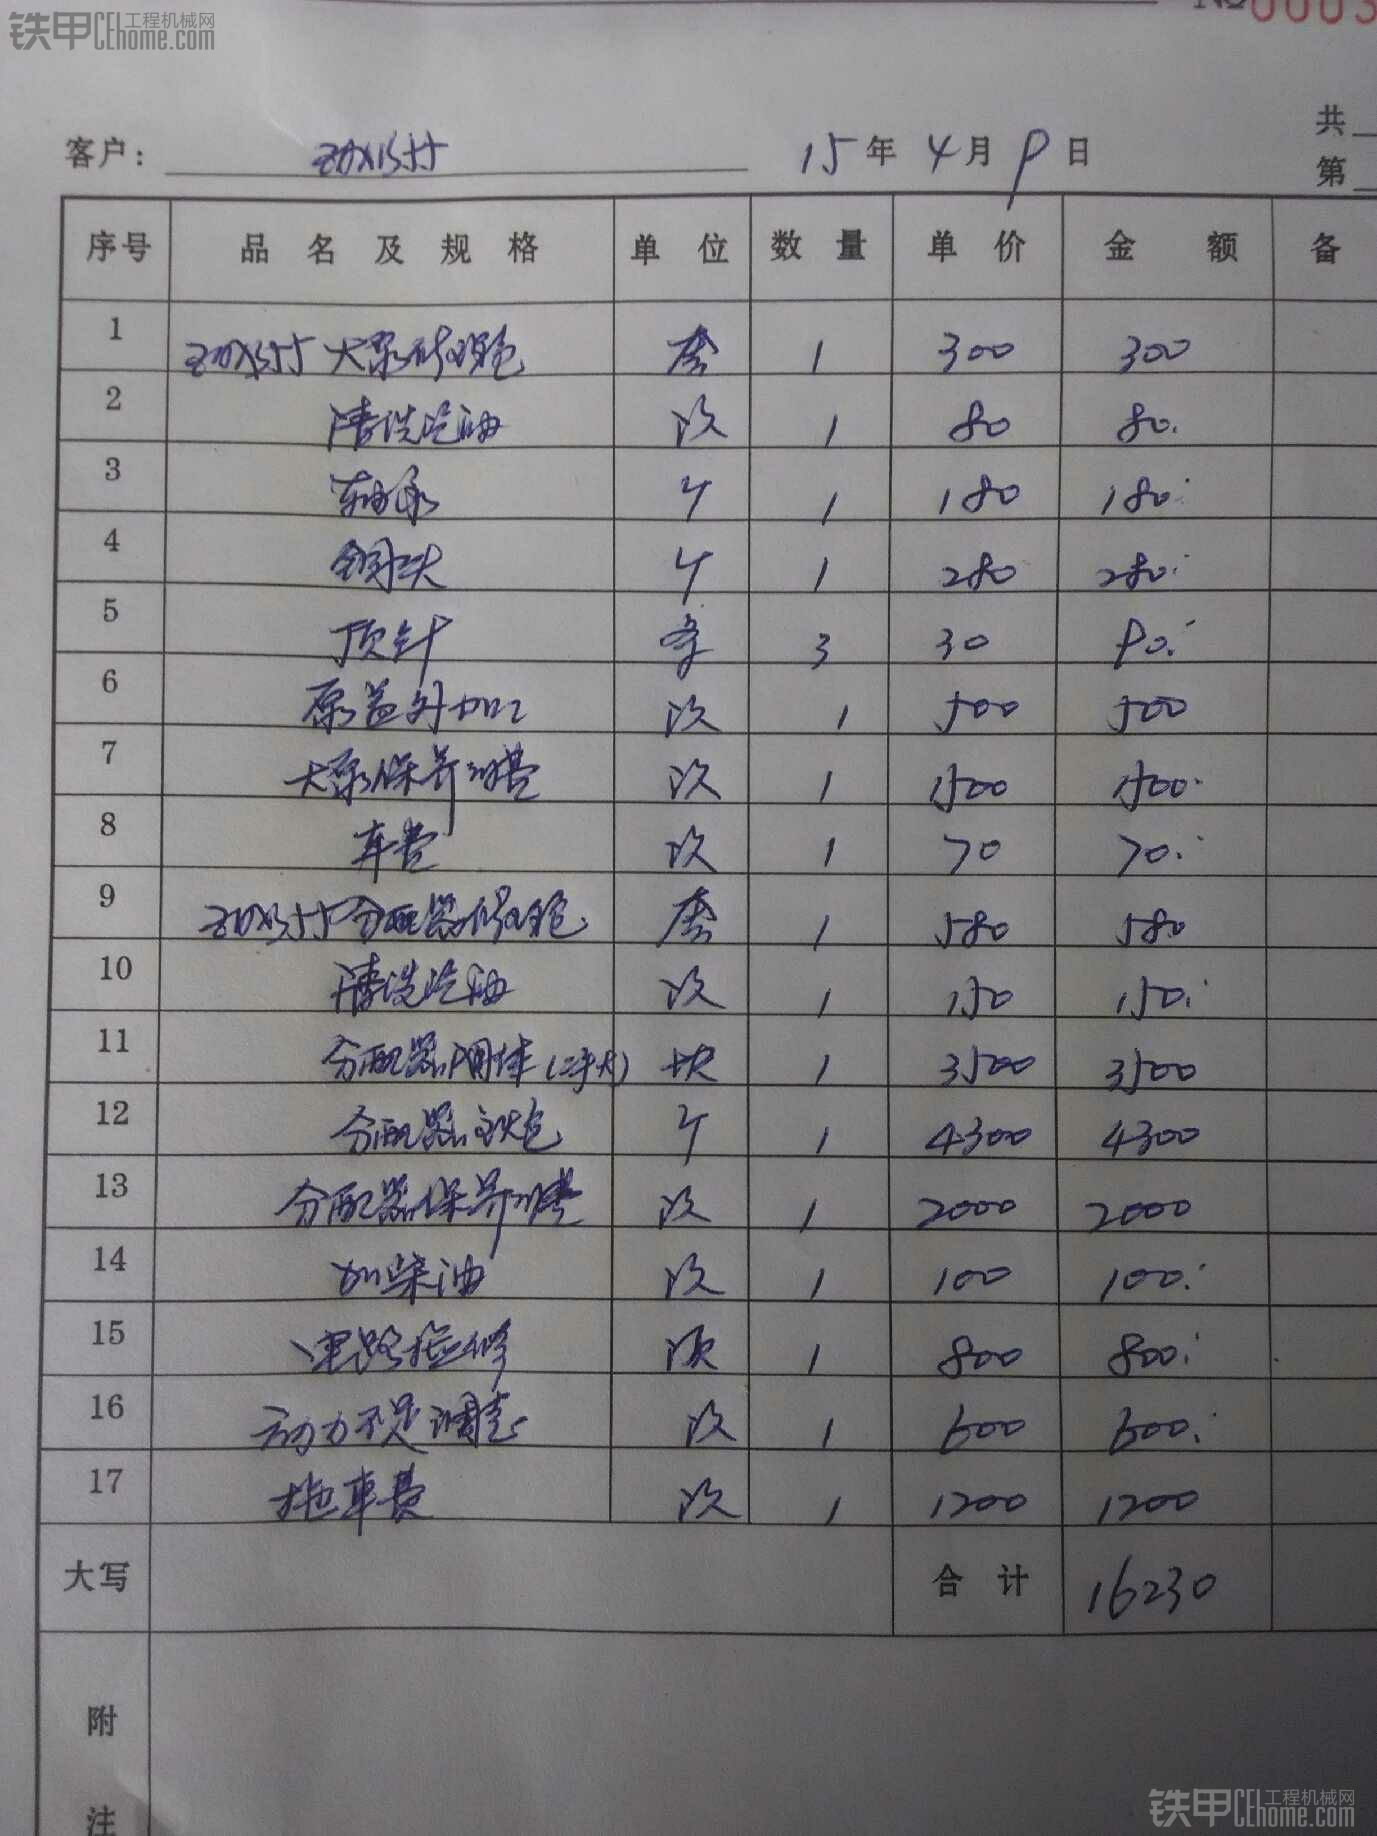 铁甲 CEhome.com 工程机械网
No 0003
共
客户: ZAX55 15年4月9日
第
序号 品名及规格 单位 数量 单价 金额 备
1 ZAX55大泵修理包 套 1 300 300
2 清洗汽油 次 1 80 80.
3 轴承 个 1 180 180.
4 铜头 个 1 280 280.
5 顶针 支 3 30 90.
6 泵盖外加工 次 1 500 500
7 大泵保养调费 次 1 1500 1500.
8 车费 次 1 70 70.
9 ZAX55分配器修理包 套 1 580 580
10 清洗汽油 次 1 150 150.
11 分配器阀体(二手大) 块 1 3500 3500
12 分配器主炮 个 1 4300 4300
13 分配器保养调费 次 1 2000 2000
14 加柴油 次 1 100 100.
15 电路检修 项 1 800 800.
16 动力不足调整 次 1 600 600.
17 拖车费 次 1 1200 1200
大写 合计 16230
附
注
铁甲 CEhome.com 工程机械网